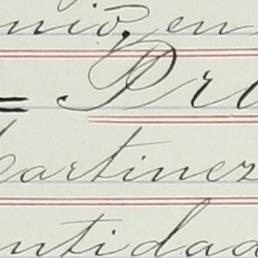 nio, en
= Pro
artinez
ntidad